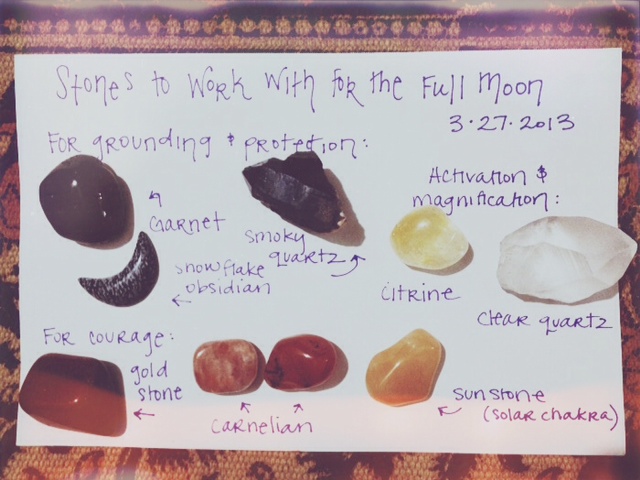 Stones to Work With for the Full Moon
3.27.2013
For grounding & protection:
Garnet
smoky
quartz
snowflake
obsidian
Activation &
magnification:
citrine
clear quartz
For courage:
gold
stone
carnelian
sunstone
(solar chakra)